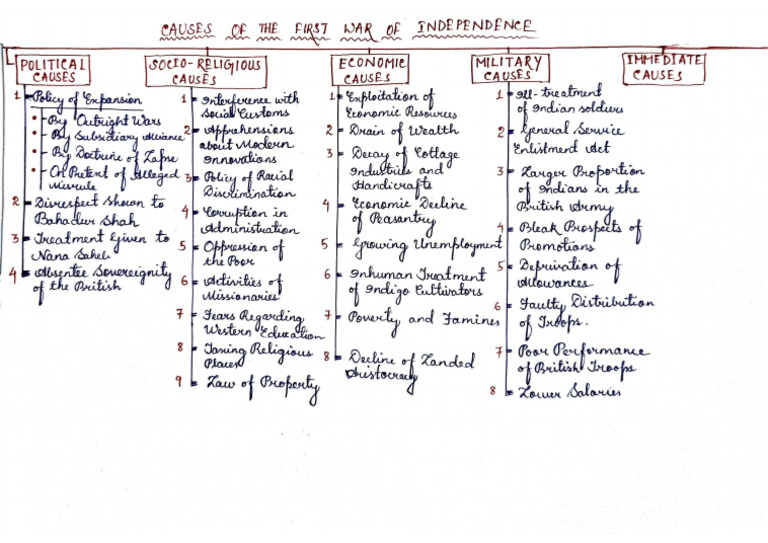 CAUSES OF THE FIRST WAR OF INDEPENDENCE
POLITICAL
CAUSES
1 Policy of Expansion
• By Outright Wars
• By Subsidiary Alliance
• By Doctrine of Lapse
• On Pretext of Alleged
Misrule
2 Disrespect Shown to
Bahadur Shah
3 Treatment Given to
Nana Saheb
4 Absentee Sovereignity
of the British
SOCIO-RELIGIOUS
CAUSES
1 Interference with
Social Customs
2 Apprehensions
about Modern
Innovations
3 Policy of Racial
Discrimination
4 Corruption in
Administration
5 Oppression of
the Poor
6 Activities of
Missionaries
7 Fears Regarding
Western Education
8 Taxing Religious
Places
9 Law of Property
ECONOMIC
CAUSES
1 Exploitation of
Economic Resources
2 Drain of Wealth
3 Decay of Cottage
Industries and
Handicrafts
4 Economic Decline
of Peasantry
5 Growing Unemployment
6 Inhuman Treatment
of Indigo Cultivators
7 Poverty and Famines
8 Decline of Landed
Aristocracy
MILITARY
CAUSES
1 Ill-treatment
of Indian soldiers
2 General Service
Enlistment Act
3 Larger Proportion
of Indians in the
British Army
4 Bleak Prospects of
Promotions
5 Deprivation of
Allowances
6 Faulty Distribution
of Troops.
7 Poor Performance
of British Troops
8 Lower Salaries
IMMEDIATE
CAUSES